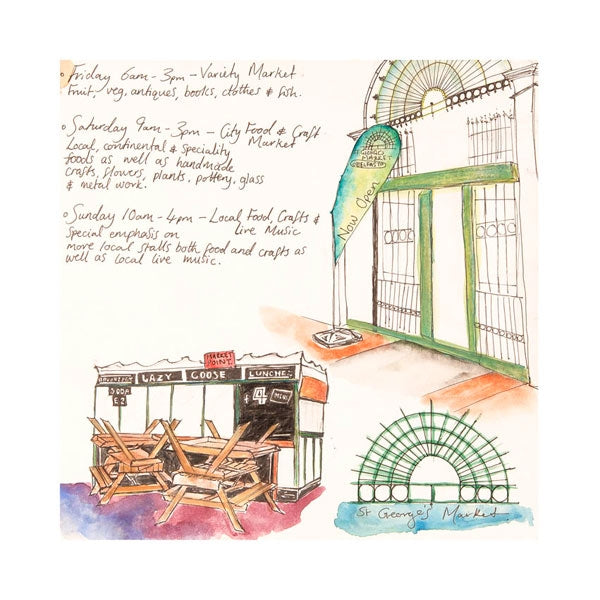 Friday 6am - 3pm - Variety Market
Fruit, veg, antiques, books, clothes & fish.
Saturday 9am - 3pm - City Food & Craft
Market
Local, continental & speciality
foods as well as handmade
crafts, flowers, plants, pottery, glass
& metal work.
Sunday 10am - 4pm - Local Food, Crafts &
live Music
Special emphasis on
more local stalls both food and crafts as
well as local live music.
MARKET
BELFAST
Now Open
MARKET
POINT
LAZY GOOSE LUNCHES
SODA
£2
MENU
St George's Market